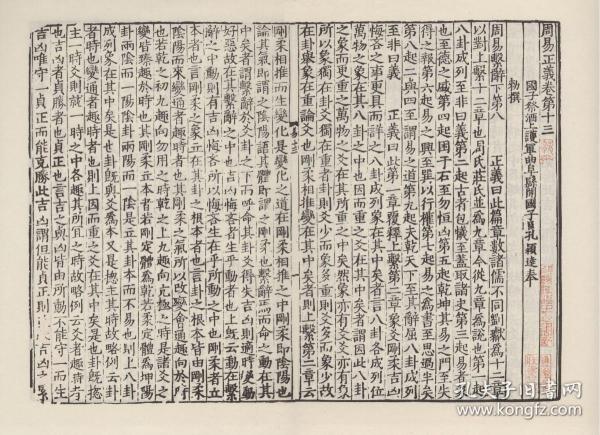 周易正義卷第十三
國子祭酒上護軍曲阜縣開國子臣孔穎達奉
勑撰
周易繫辭下第八
正義曰此篇章數諸儒不同劉瓛為十二章
以對上繫十二章也周氏莊氏並為九章今從九章為說也第一起
八卦成列至非曰義第二起古者包犧至蓋取諸夬第三起易者象
也至德之盛第四起困于石至勿恒凶第五起乾坤其易之門至失
得之報第六起易之興至巽以行權第七起易之為書至思過半矣
第八起二與四至謂易之道第九起夫乾天下至其辭屈八卦成列
至非曰義
正義曰此第一章覆釋上繫第二章象爻剛柔吉凶
悔吝之事更具而詳八卦成列象在其中矣者言八卦各成列位
萬物之象在其八卦之中也因而重之爻在其中矣者謂因此八卦
之象而更重之萬物之爻在其所重之中矣然象亦有爻爻亦有象
所以象獨在卦爻獨在重者卦則爻少而象多重則爻多而象少故
在卦舉象在重論爻也剛柔相推變在其中矣者則上繫第二章云
剛柔相推而生變化是變化之道在剛柔相推之中剛柔即陰陽也
論其氣即謂之陰陽語其體即謂之剛柔也繫辭焉而命之動在其
中矣者謂繫辭於爻卦之下而呼命其卦爻得失吉凶則適時變動
好惡故在其繫辭之中也吉凶悔吝者生乎動者也上既云動在繫
辭之中動則有吉凶悔吝所以悔吝生在乎所動之中也剛柔者立
本者也言剛柔之象立在其卦之根本者也言卦之根本皆由剛柔
陰陽而來變通者趣時者也其剛柔之氣所以改變會通趣向於時
變皆臻趣於時也其剛柔立本者若剛定體為乾若柔定體為坤陽
卦兩陰而一陽陰卦兩陽而一陰是立其卦本而不易也則上八卦
成列象在其中矣是也卦既與爻為本又是揔主其時故略例云卦
者時也變通者趣時者也則上因而重之爻在其中矣是也卦既揔
主一時爻則就一時之中各趣其所宜之時故略例云爻者趣時者
也吉凶者貞勝者也貞正也言吉之與凶皆由所動不能守一而生
吉凶唯守一貞正而能克勝此吉凶謂但能貞正則